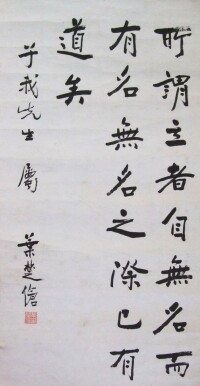 所謂立者自無名而
有名無名之際已有
道矣
我先生屬
葉楚傖